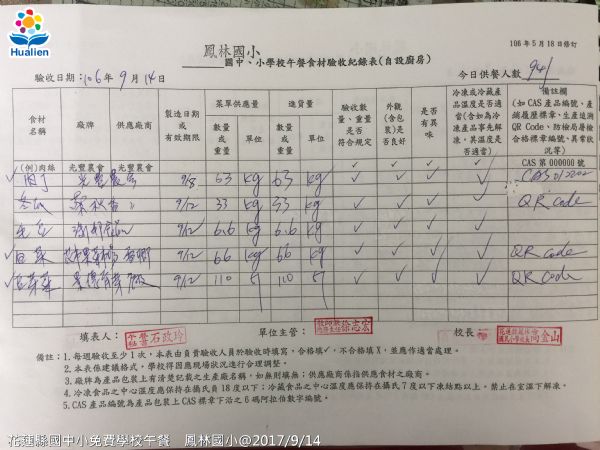 Hualien
鳳林國小
106年5月18日修訂
國中、小學校午餐食材驗收紀錄表(自設廚房)
驗收日期：106年9月14日
今日供餐人數 941
食材名稱
廠牌
供應廠商
製造日期或有效期限
菜單供應量
數量或重量
單位
進貨量
數量或重量
單位
驗收數量、重量是否符合規定
外觀(含包裝)是否良好
是否有異味
冷凍或冷藏產品溫度是否適當(含如為冷凍產品事先解凍，其溫度是否適當)
備註欄
(如CAS產品編號、產銷履歷標章、生產追溯QR Code、防檢局屠檢合格標章編號、異常狀況等)
(例)肉絲 光豐農會 光豐農會 ✓ ✓ ✓ ✓ CAS 第 000000 號
✓肉丁 光豐農會 9/8 63 kg 63 kg ✓ ✓ ✓ ✓
冬瓜 9/12 33 kg 33 kg ✓ ✓ ✓ ✓ QR code
9/12 6.6 kg 6.6 kg ✓ ✓ ✓ ✓
✓白菜 9/12 66 kg 66 kg ✓ ✓ ✓ ✓ QR code
9/12 110 110 ✓ ✓ ✓ ✓ QR code
填表人：
石政玲
單位主管：
校長
備註：1.每週驗收至少1次，本表由負責驗收人員於驗收時填寫，合格填✓，不合格填X，並應作適當處理。
2.本表係建議格式，學校得因應現場狀況進行合理調整。
3.廠牌為產品包裝上有清楚記載之生產廠名稱，如無則填無；供應廠商係指供應食材之廠商。
4.冷凍食品之中心溫度應保持在攝氏負18度以下；冷藏食品之中心溫度應保持在攝氏7度以下凍結點以上。禁止在室溫下解凍。
5.CAS產品編號為產品包裝上CAS標章下沿之6碼阿拉伯數字編號。
花蓮縣國中小免費學校午餐 鳳林國小@2017/9/14